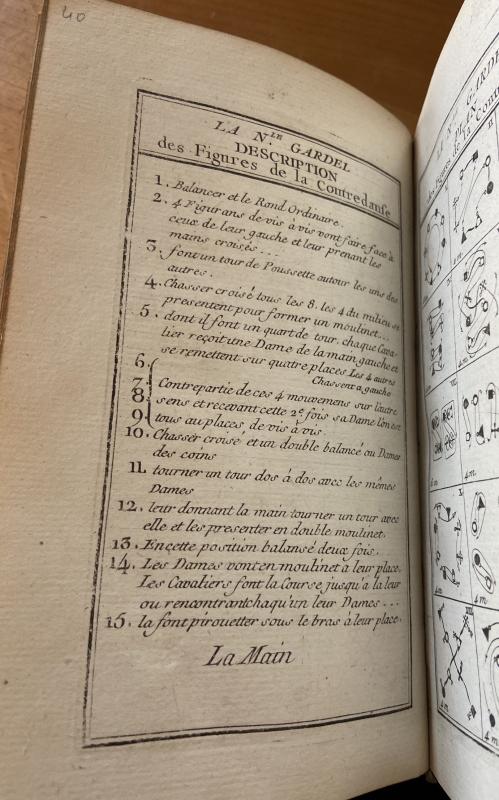 40
LA N.le GARDEL
DESCRIPTION
des Figures de la Contredanse
1. Balancer et le Rond Ordinaire.
2. 4 Figurans de vis à vis vont faire face à
ceux de leur gauche et leur prenant les
mains croisés ...
3. font un tour de Poussette autour les uns des
autres.
4. Chasser croisé tous les 8, les 4 du milieu se
presentent pour former un moulinet...
5. dont il font un quart de tour, chaque Cava-
lier reçoit une Dame de la main gauche et
se remettent sur quatre places Les 4 autres
Chassent a gauche
6.
7. Contrepartie de ces 4 mouvemens sur l'autre
8. sens et recevant cette 2.e fois sa Dame l'on est
9. tous au places, de vis à vis.
10. Chasser croisé et un double balancé au Dames
des coins
11. tourner un tour dos à dos avec les mêmes
Dames
12. leur donnant la main tourner un tour avec
elle et les presenter en double moulinet.
13. En cette position balansé deux fois.
14. Les Dames vont en moulinet à leur place,
Les Cavaliers font la Course jusqu'a la leur
ou rencontrant chaqu'un leur Dames ...
15. la font pirouetter sous le bras à leur place.
La Main